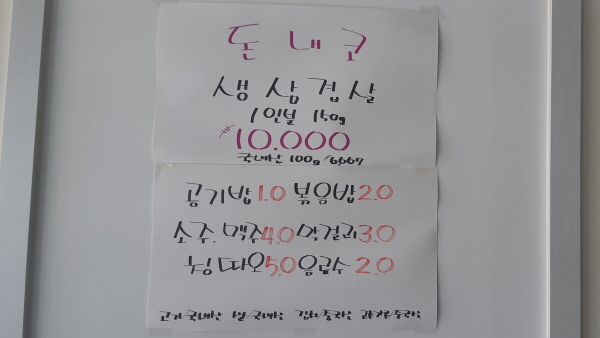 돈 내 코
생 삼 겹 살
1인분 150g
₩10.000
국내산 100g/6667
공기밥 1.0 볶음밥 2.0
소주. 맥주 4.0 막걸리 3.0
칭따오 5.0 음료수 2.0
고기/국내산 쌀/국내산 김치/중국산 고추가루/중국산